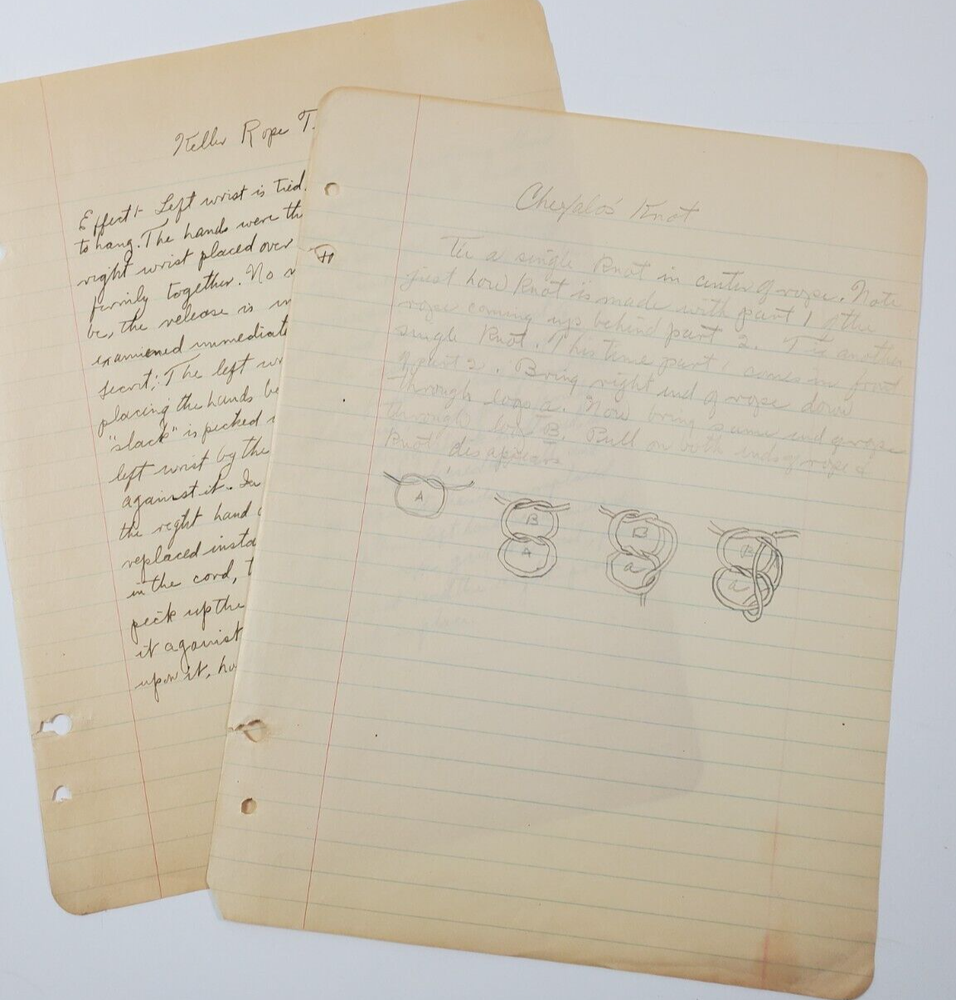 Keller Rope T.
Effect:- Left wrist is tied.
to hang. The hands were th
right wrist placed over
firmly together. No
be, the release is
examiened immediat
secret: The left
placing the hands be
"slack" is picked
left wrist by the
against it. In
the right hand
replaced insta
in the cord,
pick up the
it against
upon it, ha
Knot
Tie a single Knot in center of rope. Note
just how Knot is made with part 1 of the
rope coming up behind part 2. Tie another
single Knot. This time part 1 comes in front
of part 2. Bring right end of rope down
through loop a. Now bring same end of rope
through loop B. Pull on both ends of rope &
Knot disappears
A
B
A
B
a
B
a